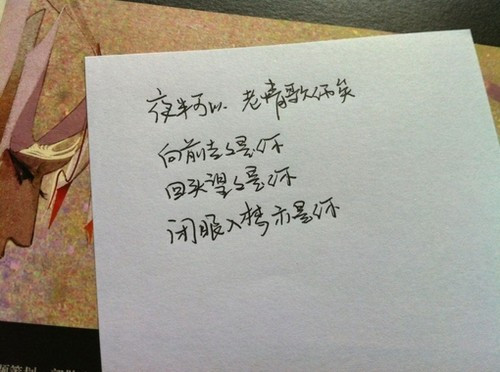 夜半可以 老情歌佐笑
向前走是你
回头望是你
闭眼入梦亦是你